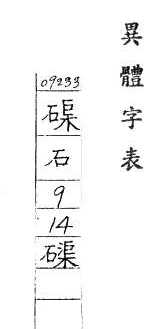 異體字表
09233
石
9
14
磲